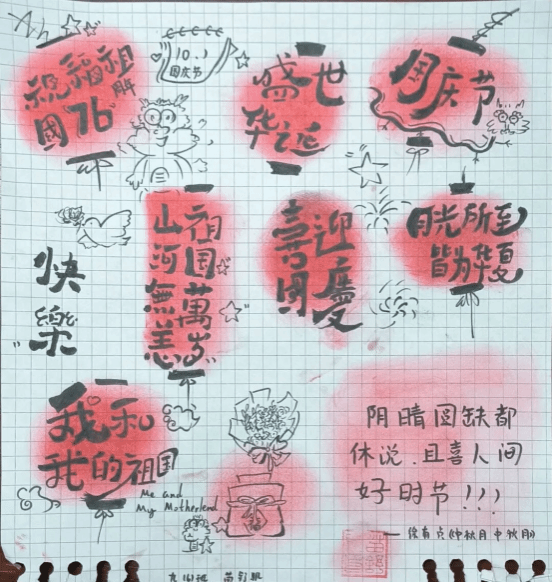 Ah
祝福祖
國“76”周年
10.1
国庆节
盛世
华诞
国庆节
祖国萬岁
山河無恙
喜迎
国慶
月光所至
皆为华夏
快樂
我和
我的祖国
Me and
My Motherland
阴晴圆缺都
休说，且喜人间
好时节!!!
—徐有贞《中秋月·中秋月》